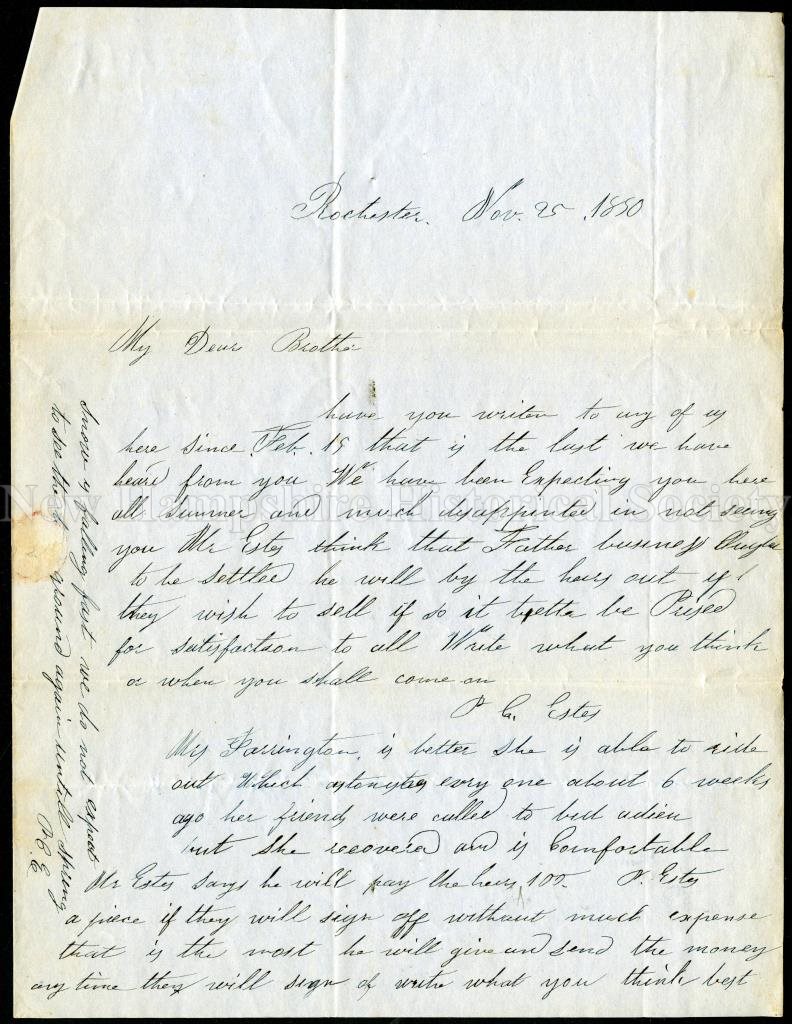 Rochester. Nov. 25, 1850
My Dear Brother
have you writen to any of us
here since Feb. 15 that is the last we have
heard from you We have been Expecting you here
all summer and much disappointed in not seeing
you Mr Estes think that Father business
to be settled he will by the heirs out if
they wish to sell if so it betta be Prised
for satisfactson to all Write what you think
or when you shall come on
P C. Estes
Mrs Farrington, is better she is able to ride
out Which every one about 6 weeks
ago her friends were called to bid adieu
but she recovered and is Comfortable
Mr Estes says he will pay the heirs 100. P. Estes
a piece if they will sign off without much expense
that is the most he will give and send the money
any time they will sign of write what you think best
Snow is falling fast we do not expect
to see the ground again untill spring
P C E
New Hampshire Historical Society